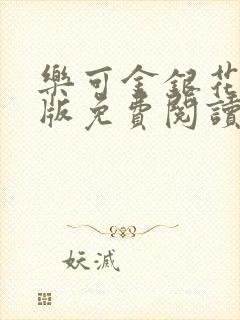 樂可金銀花
版免費閱讀
妖滅